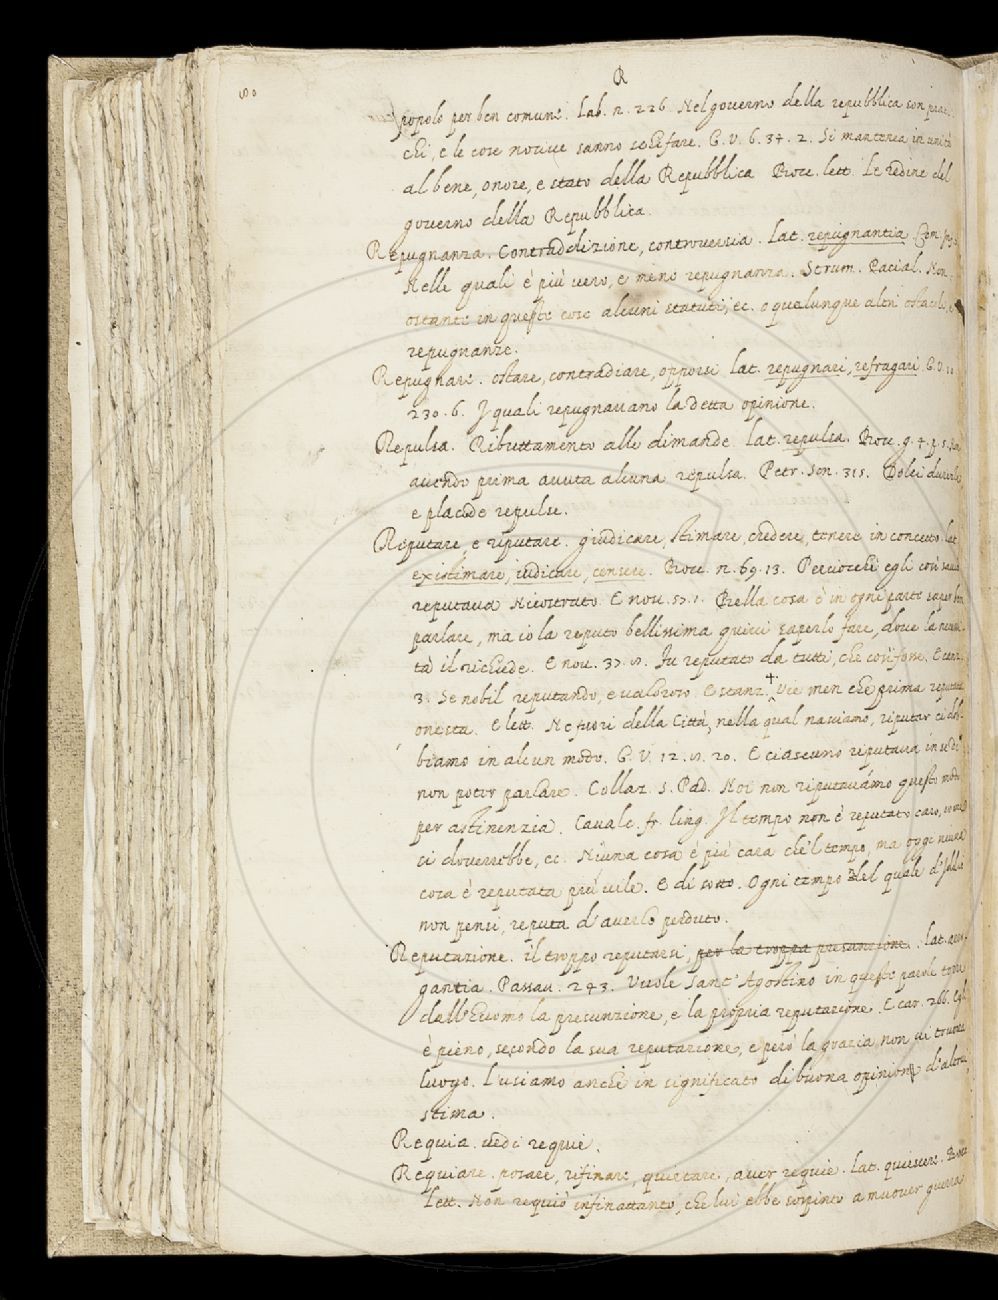 R
popolo per ben comune. Lab. n. 226. Nel governo della repubblica son
chi, e le cose nocive sanno schifare. G. V. 6. 34. 2. Si mantenea in unità
al bene, onore, e stato della Repubblica Bocc. lett. Le redine del
governo della Repubblica.
Repugnanza. Contraddizione, controversia. Lat. repugnantia. Com.
Nelle quali è più vero, e meno repugnanza. Strum. Pacial. Non
ostante in queste cose alcuni statuti, ec. o qualunque altri ostacoli, e
repugnanze.
Repugnare. ostare, contradiare, opporsi Lat. repugnari, refragari G. V. 10
230. 6. I quali repugnavano la detta opinione.
Repulsa. Ributtamento alle dimande. Lat. repulsa. Bocc. g. 4. p. 5.
avendo prima avuta alcuna repulsa. Petr. Son. 315. Dolci durezze
e placide repulse.
Reputare, e riputare. giudicare, stimare, credere, tenere in concetto. lat.
existimare, iudicare, censere. Bocc. n. 69. 13. Perciocchè egli così savia
reputava Nicostrato. E nov. 57. 1. Bella cosa è in ogni parte saper ben
parlare, ma io la reputo bellissima quivi saperlo fare, dove la necessi-
tà il richiede. E nov. 37. Fu reputato da tutti, che così fosse. E canz.
3. Se nobil reputando, e valoroso. E stanz. + Vie men che prima reputata
onesta. E lett. Ne fuori della Città, nella qual nasciamo, riputar ci dob-
biamo in alcun modo. G. V. 12. 20. E ciascuno reputava in se di
non poter parlare. Collaz. S. Pad. Noi non riputavámo questo modo
per astinenzia. Cavalc. fr. ling. Il tempo non è reputato caro, come
si doverrebbe, ec. Niuna cosa è più cara che'l tempo, ma oggi neuna
cosa è reputata più vile. E di sotto. Ogni tempo del quale d'Iddio
non pensi, reputa d'averlo perduto.
Reputazione. il troppo reputarsi, per la troppa presunzione. Lat. arro-
gantia. Passav. 243. Vuole Sant' Agostino in queste parole torre
dall'Euomo la presunzione, e la propria reputazione. E car. 266. Egli
è pieno, secondo la sua reputazione, e però la grazia non vi truova
luogo. L'usiamo anche in significato di buona opinione d'altrui,
stima.
Requia. vedi requie.
Requiare. posare, rifinare, quietare, aver requie. Lat. quiescere. Bocc.
Lett. Non requiò infinattanto, che lui ebbe sospinto a muover guerra